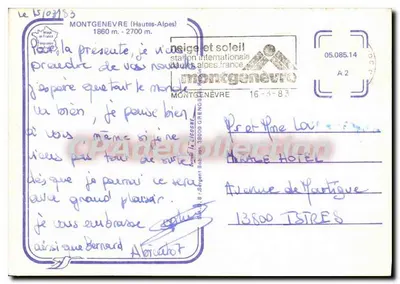 le 15/03/83
MONTGENEVRE (Hautes-Alpes)
1860 m. - 2700 m.
Par la présente, je viens
prendre de vos nouvelles
j'espère que tout le monde
va bien, je pense bien
à vous même si je ne
viens pas tout de suite
dès que je pourrai ce sera
avec grand plaisir.
je vous embrasse
ainsi que Bernard
A bientôt
neige et soleil
station internationale
alpes france
montgenèvre
MONTGENEVRE 16-3-83
05.085.14
A 2
Mr et Mme
HOTEL
Avenue de Martigue
13800 ISTRES